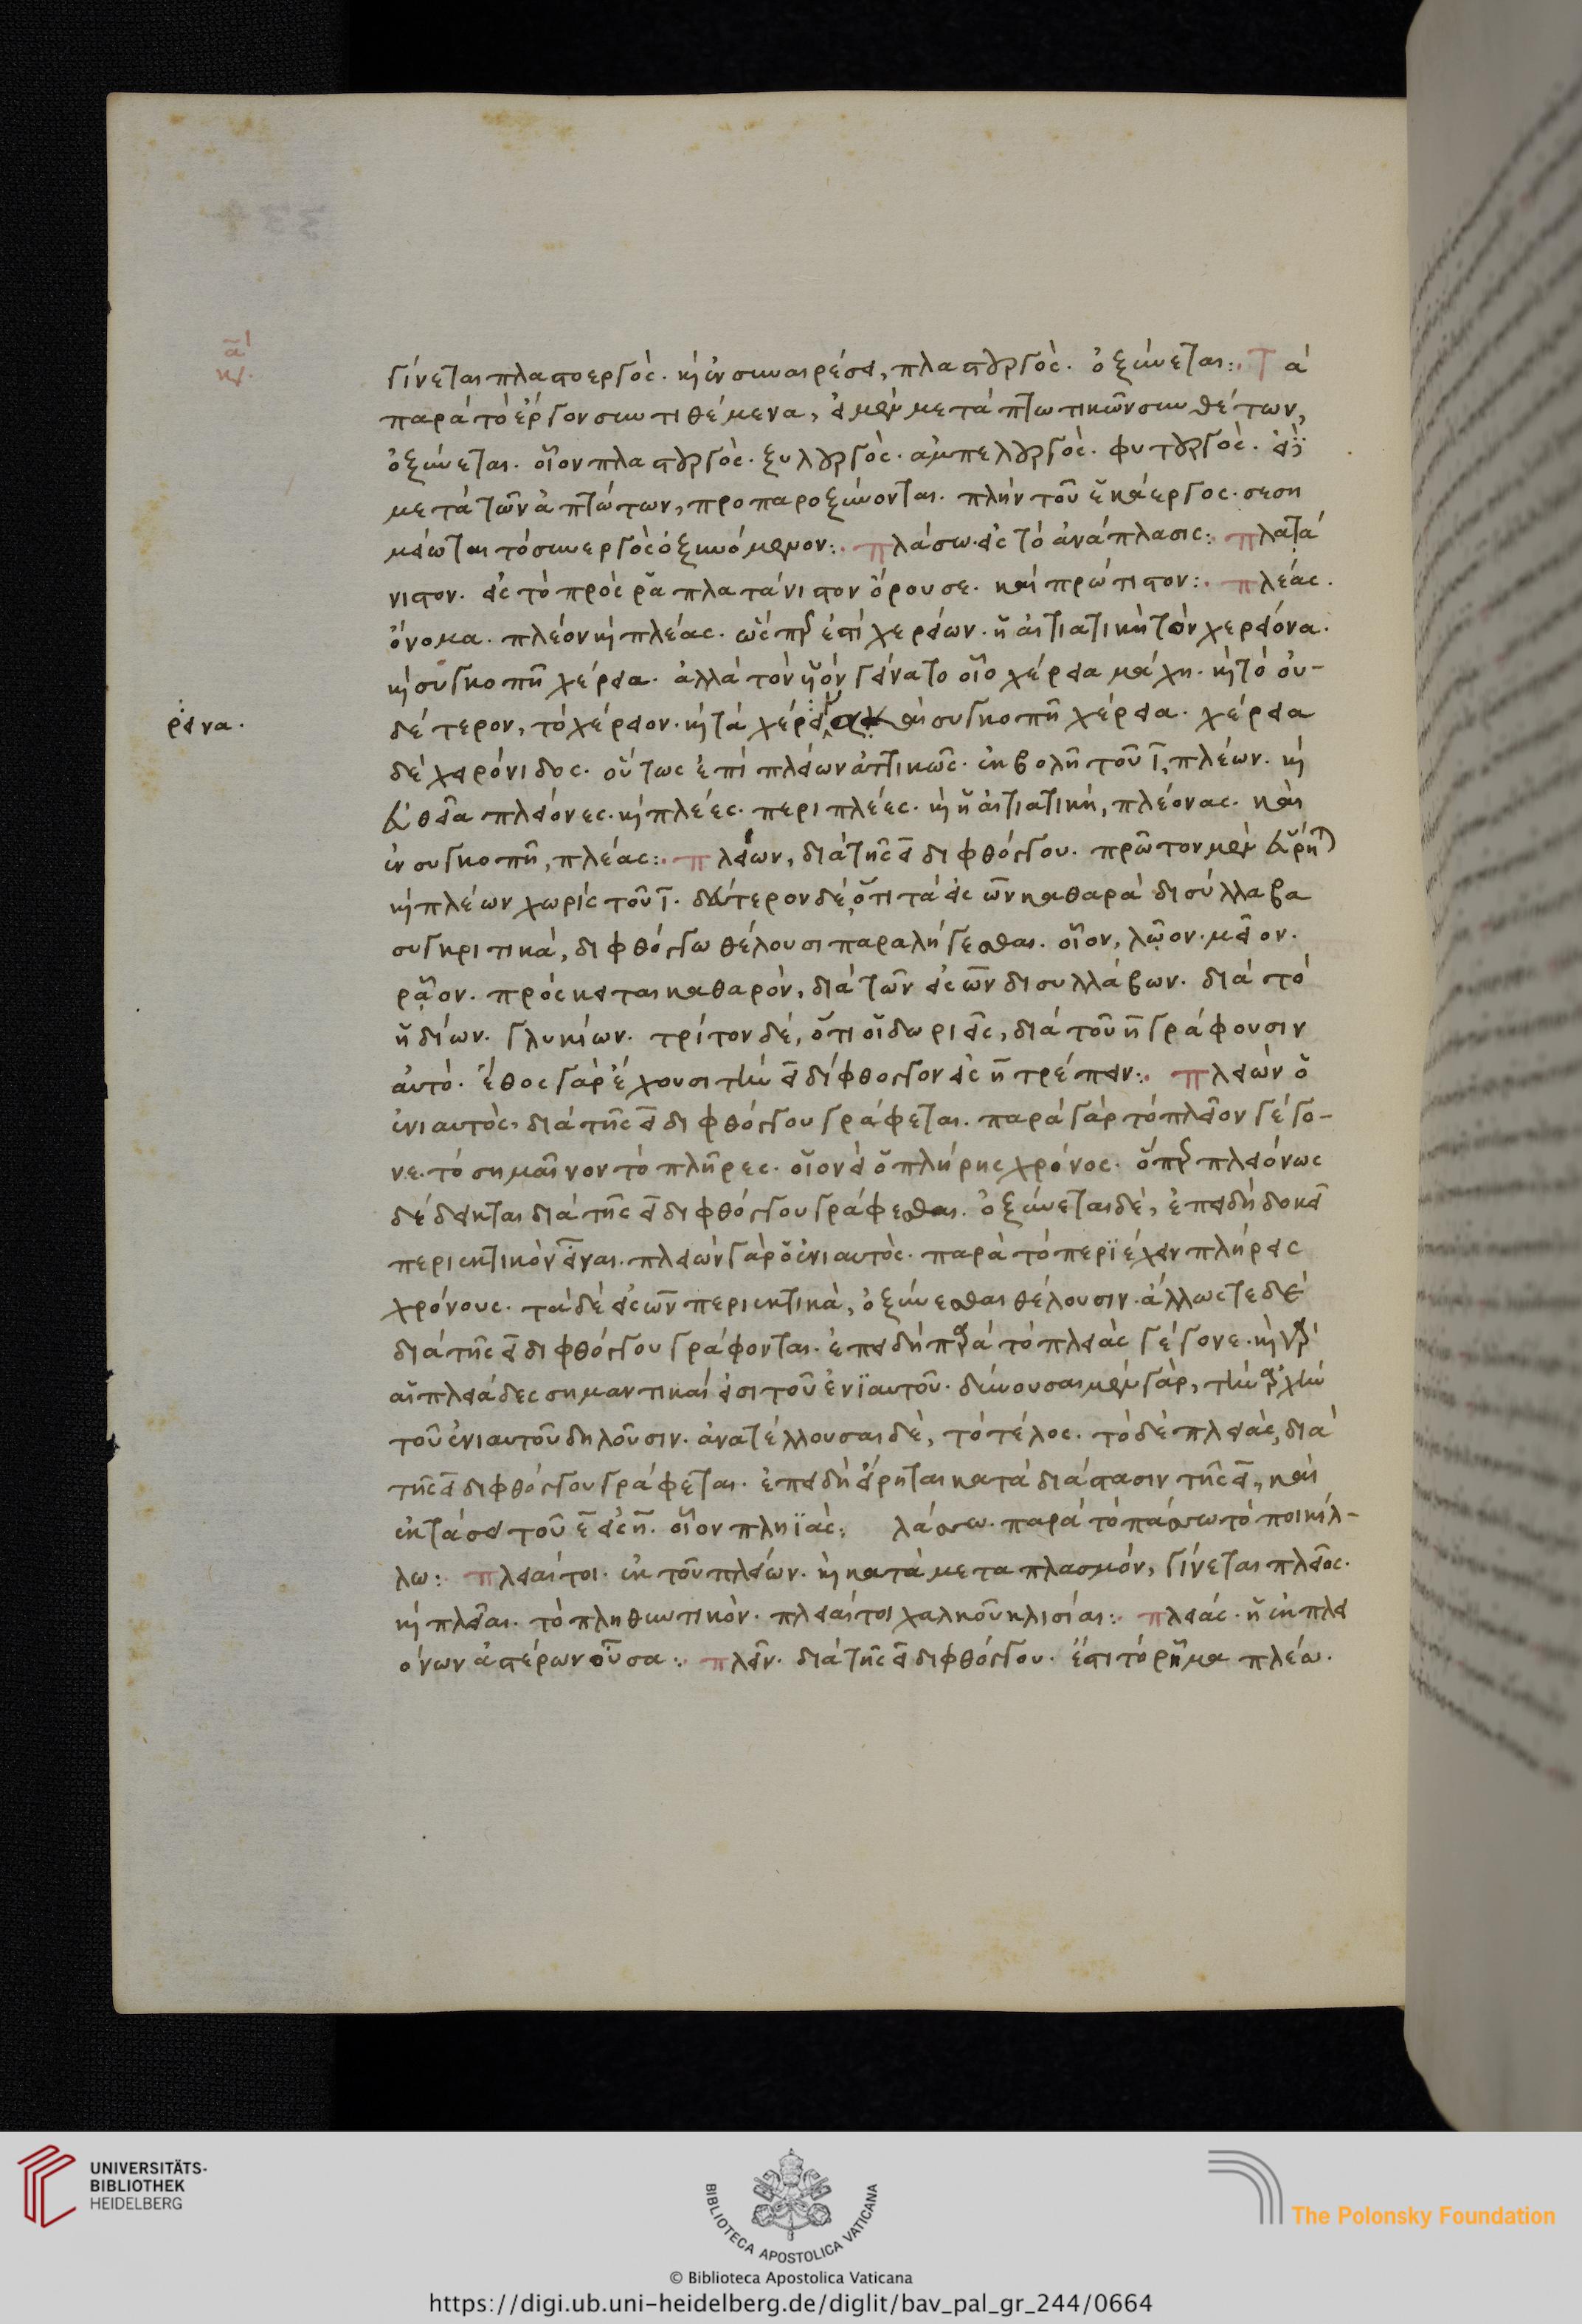 α
κδ.
γίνεται πλαστοεργὸς. καὶ ἐν συναιρέσει, πλαστουργὸς. ὀξύνεται:. Τὰ
παρὰ τὸ ἔργον συντιθέμενα, εἰ μὲν μετὰ πτωτικῶν συνθέτων,
ὀξύνεται. οἷον πλαστουργὸς. ξυλουργὸς. ἀμπελουργὸς. φυτουργὸς.
μετὰ τῶν ἀπτώτων, προπαροξύνονται. πλὴν τοῦ ἑκάεργος. σεση
μείωται τὸ συνεργὸς ὀξυνόμενον:. πλάσω. εἰς τὸ ἀνάπλασις:. πλατά
νιστον. εἰς τὸ πρὸς ῥὰ πλατάνιστον ὄρουσε. καὶ πρώτιστον:. πλέας.
ὄνομα. πλέον καὶ πλέας. ὥσπερ ἐστὶ χερείων. ἡ αἰτιατικὴ τὸν χερείονα.
καὶ συγκοπῇ χέρεια. ἀλλὰ τὸν υἱὸν γείνατο οἷο χέρεια μάχῃ. καὶ τὸ οὐ-
ρείονα.
δέτερον, τὸ χέρειον. καὶ τὰ χέρεια καὶ συγκοπῇ χέρεια. χέρεια
δὲ χείρονι δός. οὕτως ἐπὶ πλείων ἀττικῶς. ἐκβολῇ τοῦ ι, πλέων. καὶ
εὐθεῖα πλείονες. καὶ πλέες. περιπλέες. καὶ ἡ αἰτιατικὴ, πλέονας. καὶ
ἐν συγκοπῇ, πλέας:. πλείων, διὰ τῆς ει διφθόγγου. πρῶτον μὲν εὕρηται
καὶ πλέων χωρὶς τοῦ ι. δεύτερον δὲ, ὅτι τὰ εἰς ων καθαρὰ δισύλλαβα
συγκριτικὰ, διφθόγγω θέλουσι παραλήγεσθαι. οἷον, λῷον. μεῖον.
ρᾷον. πρόσκειται καθαρὸν, διὰ τῶν εἰς ων δισυλλάβων. διὰ τὸ
ἡδίων. γλυκίων. τρίτον δὲ, ὅτι οἱ δωριεῖς, διὰ τοῦ η γράφουσιν
αὐτό. ἔθος γὰρ ἔχουσι τὴν ει δίφθογγον εἰς η τρέπειν:. πλειὼν ὁ
ἐνιαυτὸς, διὰ τῆς ει διφθόγγου γράφεται. παρὰ γὰρ τὸ πλεῖον γέγο-
νε. τὸ σημαῖνον τὸ πλῆρες. οἱονεὶ ὁ πλήρης χρόνος. ὅπερ πλειόνως
δέδεικται διὰ τῆς ει διφθόγγου γράφεσθαι. ὀξύνεται δὲ, ἐπειδὴ δοκεῖ
περιεκτικὸν εἶναι. πλειὼν γὰρ ὁ ἐνιαυτὸς. παρὰ τὸ περιέχειν πλήρεις
χρόνους. τὰ δὲ εἰς ων περιεκτικὰ, ὀξύνεσθαι θέλουσιν. ἄλλως τε δὲ
διὰ τῆς ει διφθόγγου γράφονται. ἐπειδὴ παρὰ τὸ πλειὰς γέγονε. καὶ γὰρ
αἱ πλειάδες σημαντικαί εἰσι τοῦ ἐνιαυτοῦ. δύνουσαι μὲν γὰρ, τὴν ἀρχὴν
τοῦ ἐνιαυτοῦ δηλοῦσιν. ἀνατέλλουσαι δὲ, τὸ τέλος. τὸ δὲ πλειὰς, διὰ
τῆς ει διφθόγγου γράφεται. ἐπειδὴ εὕρηται κατὰ διάστασιν τῆς ει, καὶ
ἐκτάσει τοῦ ε εἰς η. οἷον πληϊὰς: λάσσω. παρὰ τὸ πάσσω τὸ ποικίλ-
λω:. πλειαίτοι. ἐκ τοῦ πλείων. καὶ κατὰ μεταπλασμὸν, γίνεται πλεῖος.
καὶ πλεῖαι. τὸ πληθυντικὸν. πλειαίτοι χαλκοῦ κλισίαι:. πλειάς. ἡ ἐκ πλει
όνων ἀστέρων οὖσα:. πλεῖν. διὰ τῆς ει διφθόγγου. ἔστι τὸ ρῆμα πλέω.
UNIVERSITÄTS-
BIBLIOTHEK
HEIDELBERG
BIBLIOTECA APOSTOLICA VATICANA
The Polonsky Foundation
© Biblioteca Apostolica Vaticana
https://digi.ub.uni-heidelberg.de/diglit/bav_pal_gr_244/0664